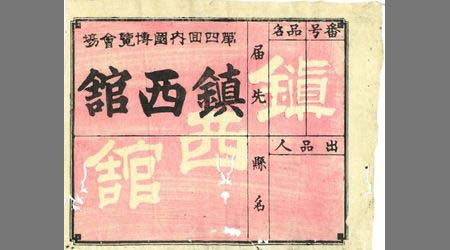 番号
品名
出品人
届先
縣名
第四回内國博覽會協
鎮西舘
鎮西舘